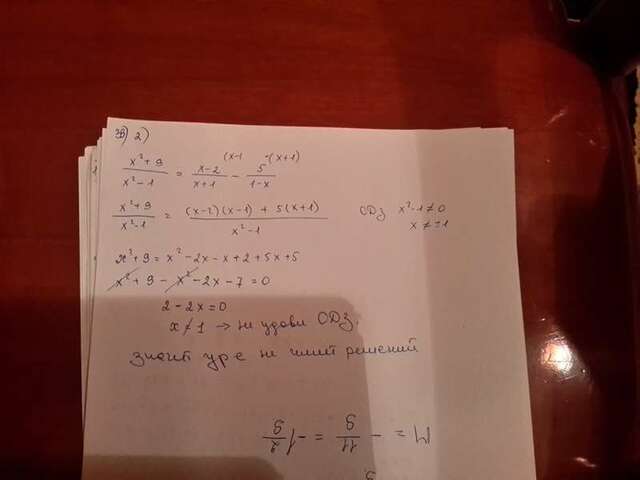 39) 2)
(x-1 -(x+1)
x²+9 / x²-1 = x-2 / x+1 - 5 / 1-x
x²+9 / x²-1 = (x-2)(x-1) + 5(x+1) / x²-1
ОДЗ x²-1≠0
x≠±1
x²+9 = x²-2x-x+2+5x+5
x²+9-x²-2x-7=0
2-2x=0
x≠1 → не удовл ОДЗ.
значит ур-е не имеет решений
M = - 11/9 = -1 2/9